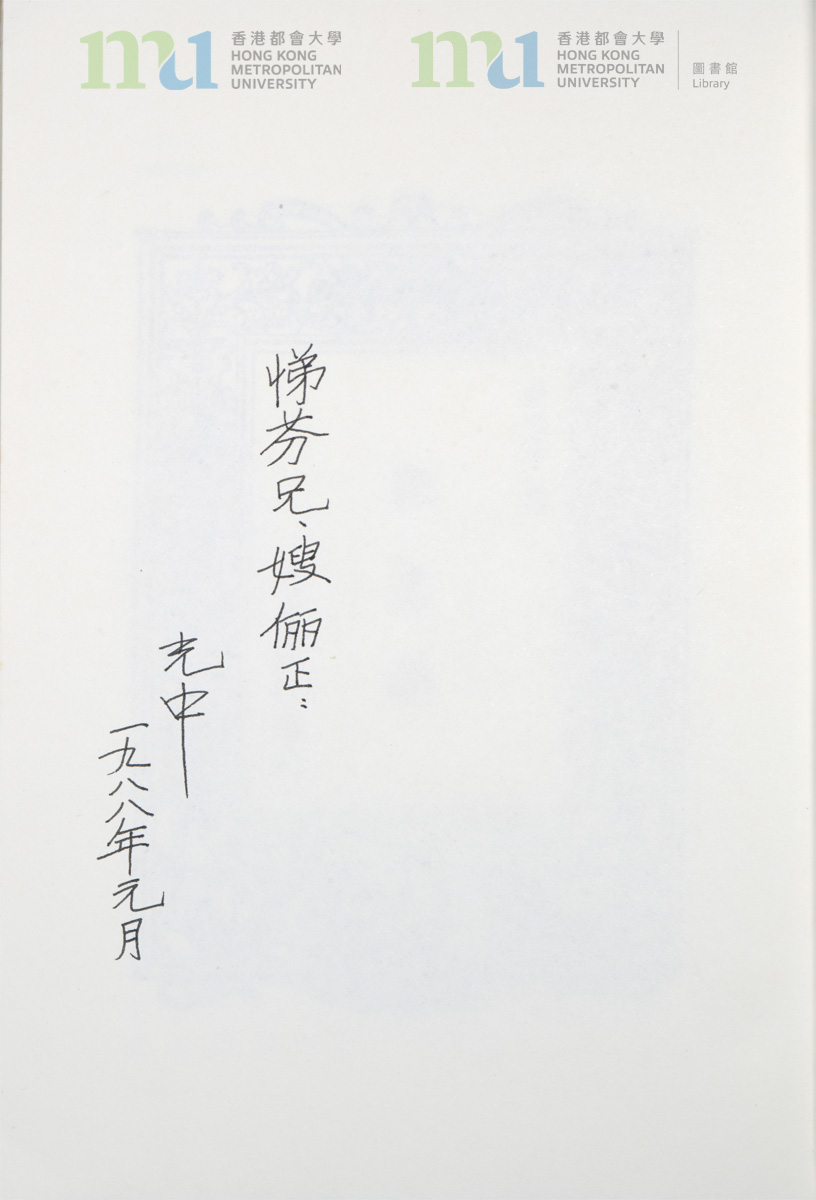 香港都會大學
HONG KONG
METROPOLITAN
UNIVERSITY
香港都會大學
HONG KONG
METROPOLITAN
UNIVERSITY
圖書館
Library
悌芬兄、嫂儷正：
光中
一九八八年元月